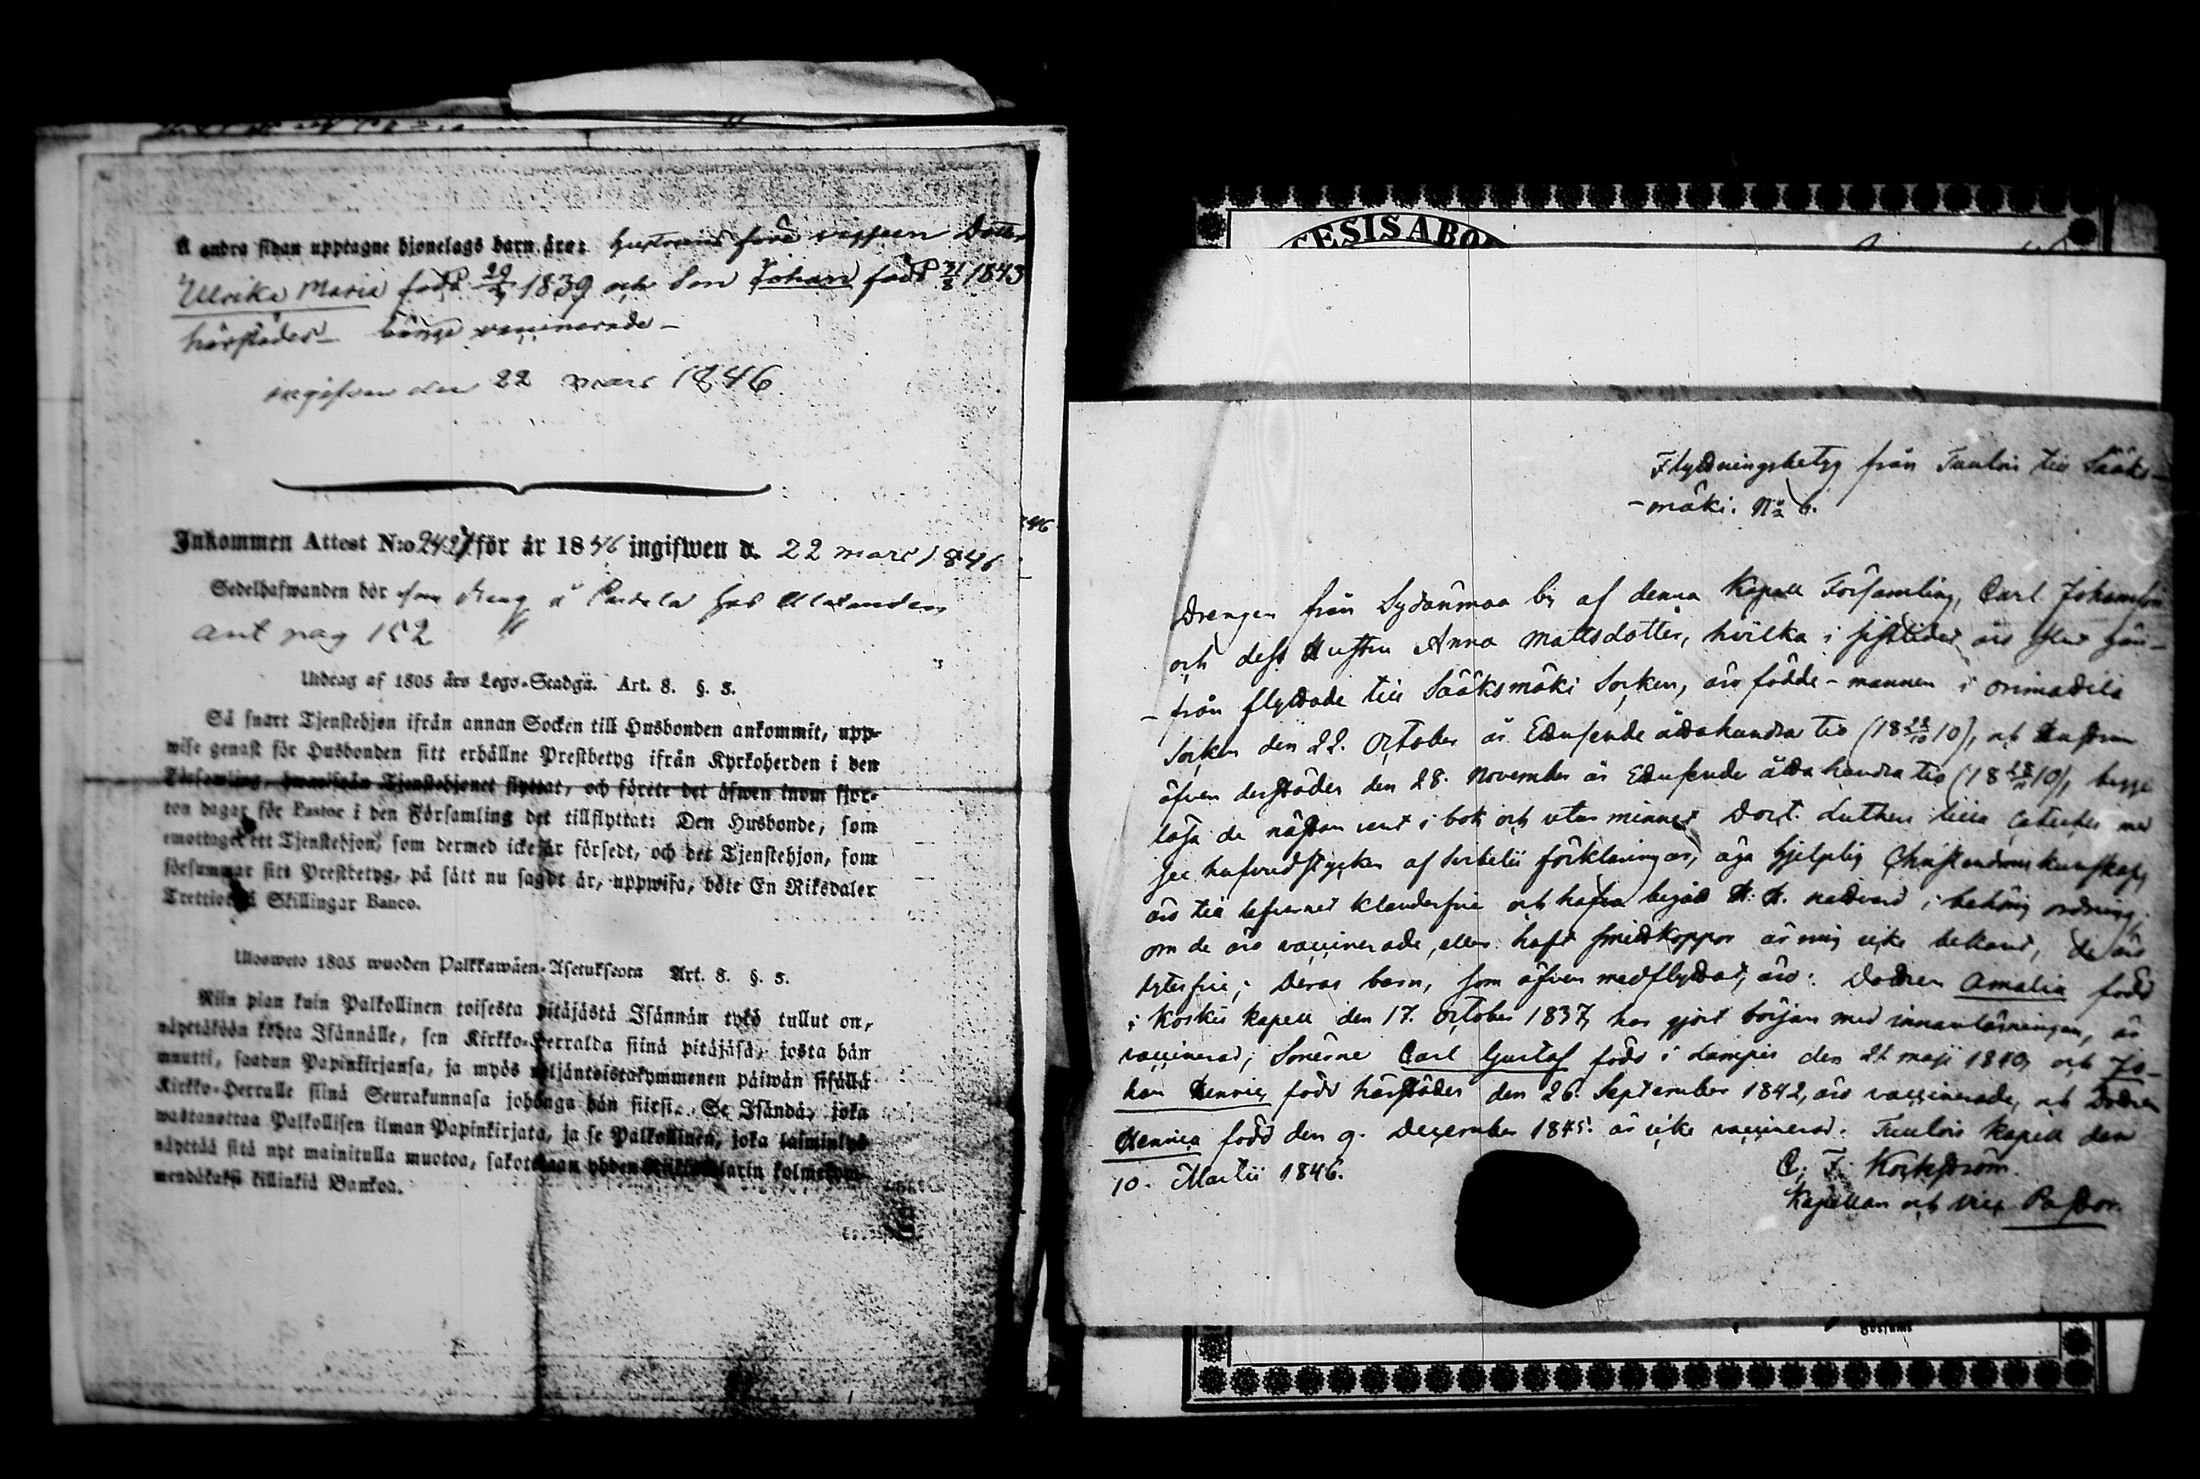 Å andra sidan upptagne hjonelags barn äro: hustruns före Dotter
Ulrika Maria född 1839 och Son Johan född 1843
härstädes vaccinerade
ingifven den 22 mars 1846
Inkommen Attest N:o för år 1846 ingifwen d. 22 mars 1846
Sedelhafwanden bör dräng hos
ant pag 152
Utdrag af 1805 års Lego-Stadga. Art. 8. §. 5.
Så snart Tjenstehjon ifrån annan Socken till Husbonden ankommit, upp-
wise genast för Husbonden sitt erhållne Prestbetyg ifrån Kyrkoherden i den
Församling, hwarifrån Tjenstehjonet flyttat, och förete det äfwen inom fjor-
ton dagar för Pastor i den Församling det tillflyttat: Den Husbonde, som
emottager ett Tjenstehjon, som dermed icke är försedt, och det Tjenstehjon, som
försummar sitt Prestbetyg, på sätt nu sagdt är, uppwisa, böte En Riksdaler
Trettio två Skillingar Banco.
Ulosweto 1805 wuoden Palkkawäen-Asetuksesta Art. 8. §. 5.
Niin pian kuin Palkollinen toisesta pitäjästä Isännän tykö tullut on,
näyttäköön kohta Isännälle, sen Kirkko-Herralda siinä pitäjäsä, josta hän
muutti, saadun Papinkirjansa, ja myös neljäntoistakymmenen päiwän sisällä
Kirkko-Herralle siinä Seurakunnasa johonga hän siirsi. Se Isändä, joka
wastanottaa Palkollisen ilman Papinkirjata, ja se Palkollinen, joka laiminlyö
näyttää sitä nyt mainitulla muotoa, sakotetaan yhden Riksdalarin kolmekym-
mendäkaksi killinkiä Bankoa.
CESIS ABO
Flyttningsbetyg från Tuulois till Sääks-
-mäki. No 6.
Drengen från Sydänmaa by af denna Kapell Församling, Carl Johansson
och dess Hustru Anna Mattsdotter, hvilka i sistlidet år här-
-från flyttade till Sääksmäki Socken, äro födde - mannen i Orimattila
Socken den 22. October år Ettusende åttahundra tio (18 22/10 10), och Hustrun
äfven derstädes den 28. November år Ettusende åttahundra tio (18 28/11 10), begge
läsa de nästan rent i bok och utur minnet Doct. Lutheri lilla Cateches med
hufvudstycken af Svebelii förklaringar, äga hjelplig Christendoms kunskap,
äro till lefvernet klanderfrie och hafva begått H. H. nattvard i behörig ordning.
om de äro vaccinerade, eller haft smittkoppor är mig icke bekant, de äro
lyterfrie; Deras barn, som äfven medflyttat, äro: Dottren Amalia född
i Koskis kapell den 17. October 1837, har gjort början med innanläsningen, är
vaccinerad; Sönerne Carl Gustaf född i Lampis den 21 maji 1840, och Jo-
han Henric, född härstädes den 26. September 1842, äro vaccinerade, och Dottren
Henrica född den 9. December 1845. är icke vaccinerad. Tuulois kapell den
10. Martii 1846.
C. F.
Kapellan och vice Pastor.